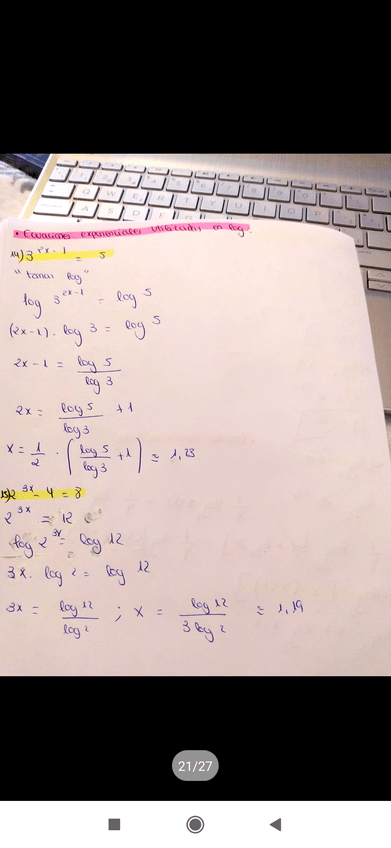 • Ecuaciones exponenciales utilizando en log.
14) 3^{2x-1} = 5
"tomar log"
log 3^{2x-1} = log 5
(2x-1) · log 3 = log 5
2x-1 = log 5 / log 3
2x = log 5 / log 3 + 1
x = 1/2 · (log 5 / log 3 + 1) ≈ 1,23
15) 2^{3x} - 4 = 8
2^{3x} = 12
log 2^{3x} = log 12
3x · log 2 = log 12
3x = log 12 / log 2 ; x = log 12 / 3 log 2 ≈ 1,19
21/27